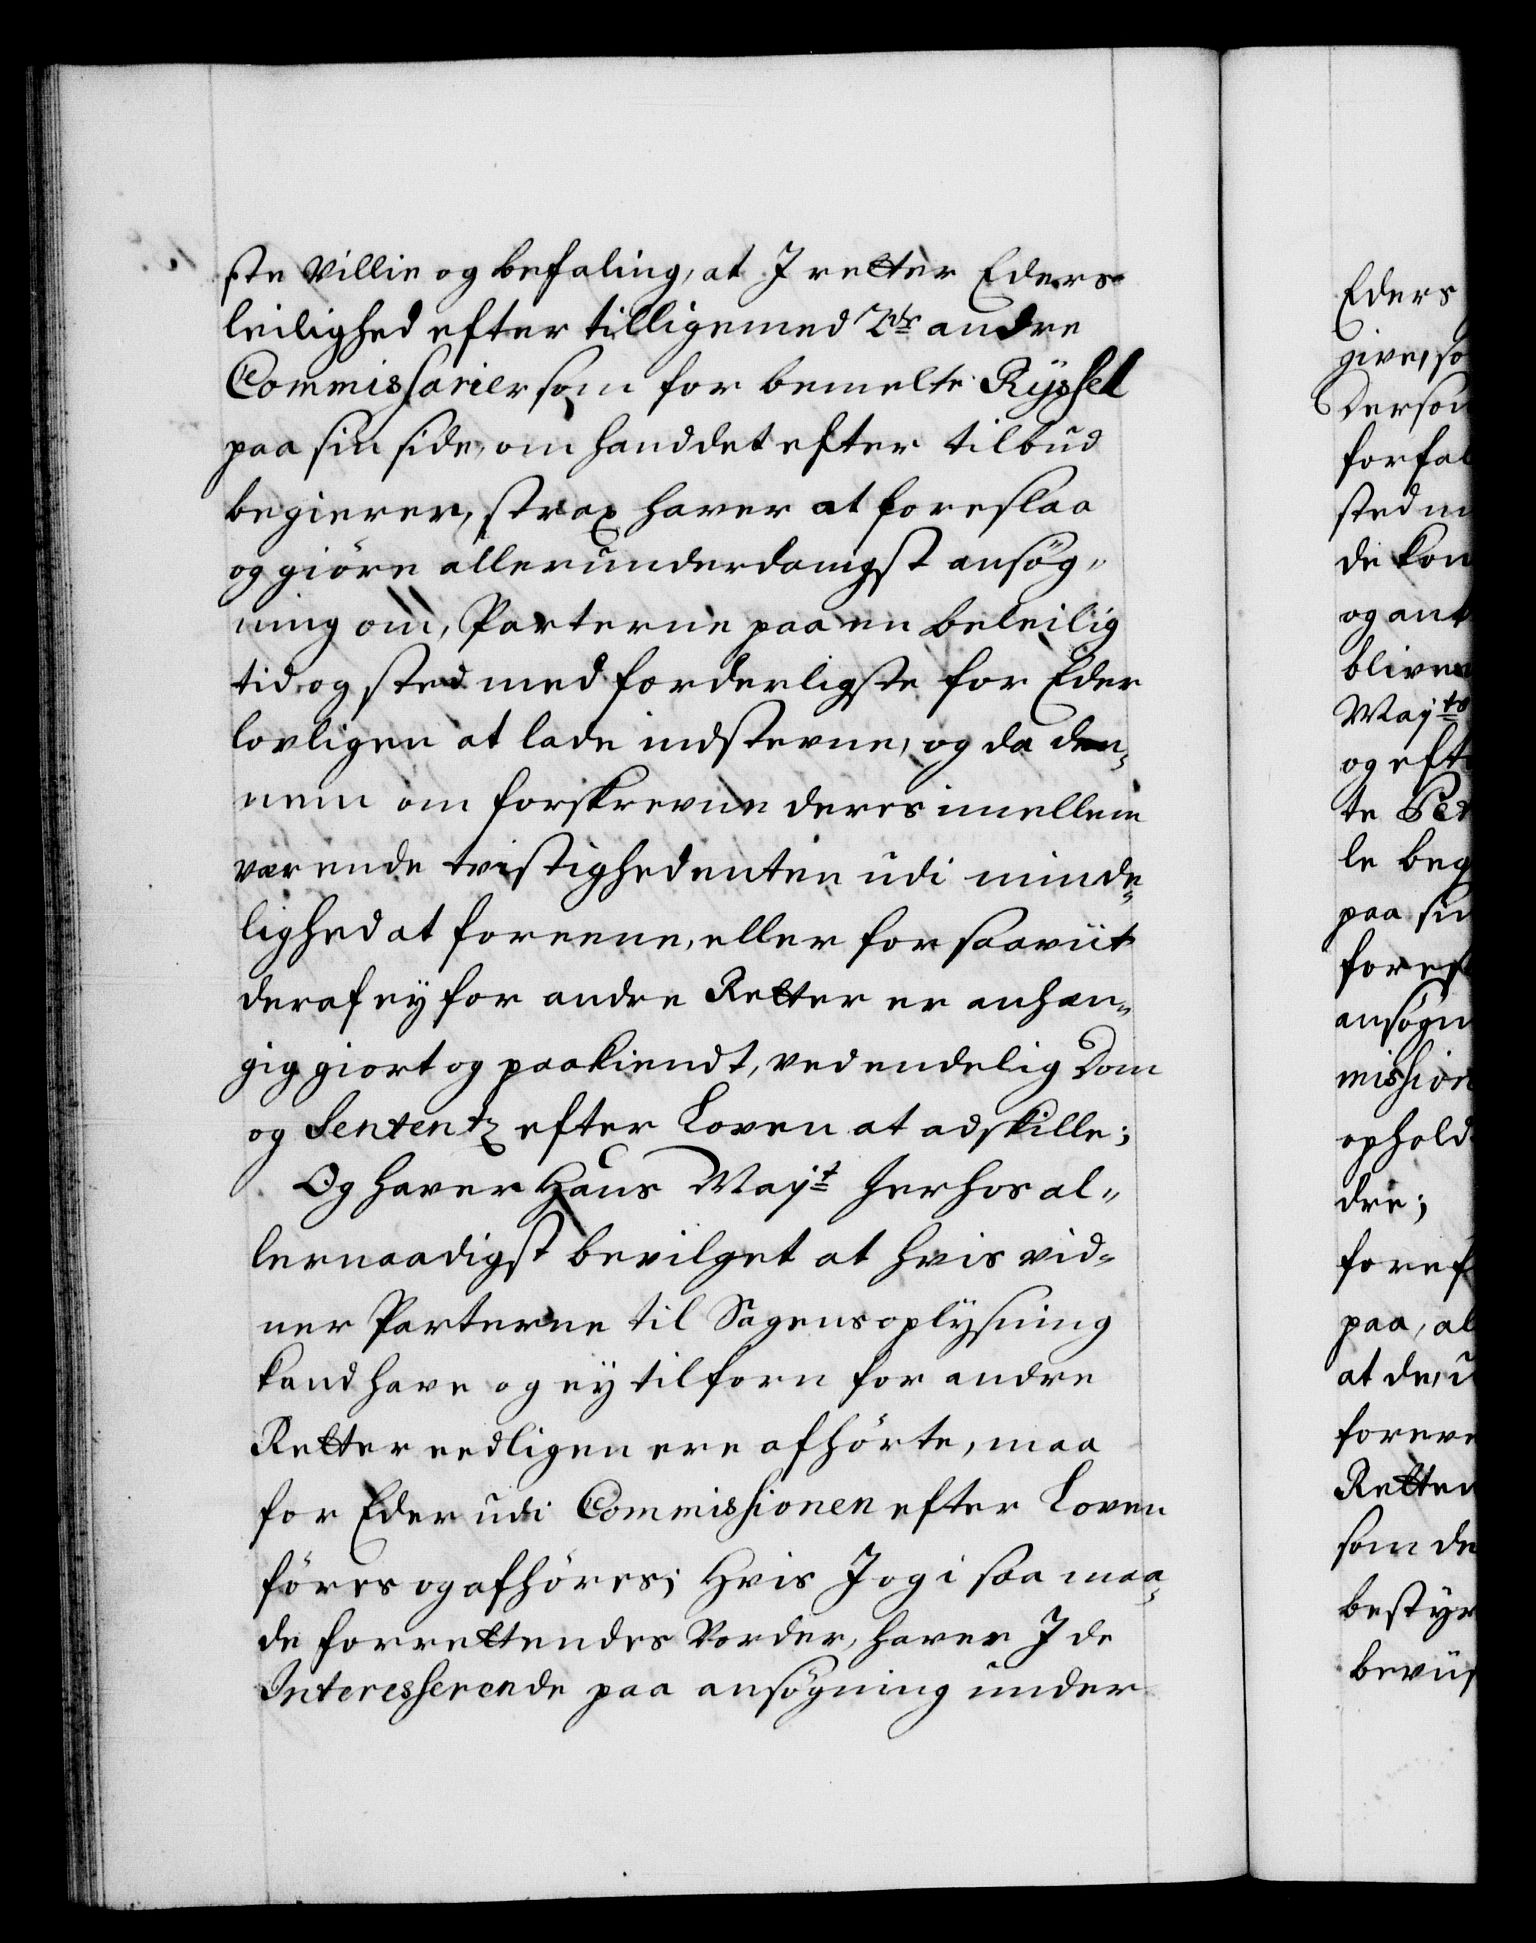 ste Villie og befaling, at I retter Eders
leilighed efter tilligemed 2de andre
Commissarier som for bemelte Ryssel
paa sin side, om hand det efter tilbud
begierer, strax haver at foreslaa
og giöre allerunderdanigst ansög„
ning om, Parterne paa en beleilig
tid og sted med forderligste for Eder
lovligen at lade indstevne, og da den„
nem om forskrevne deres imellem
værende tvistighed enten udi minde„
lighed at foreene, eller for saaviit
deraf ey for andre Retter er anhæn„
gig giort og paakiendt, ved endelig Dom
og Sententz efter Loven at adskille;
Og haver Hans Mayt herhos al„
lernaadigst bevilget at hvis vid„
ner Parterne til Sagens oplysning
kand have og ey tilforn for andre
Retter eedligen ere afhörte, maa
for Eder udi Commissionen efter Loven
föres og afhöres; Hvis I og i saa maa„
de forrettendes Vorder, haver I de
Interesserende paa ansögning under
Eders
give, so
derson
forfal
sted m
de kon
og ant
bliver
Mayts
og eft
te Ped
le beg
paa sin
foresl
ansögn
mission
ophold
dre;
foref
paa, al
at de, u
foreve
Retten
som de
bestyr
beviis